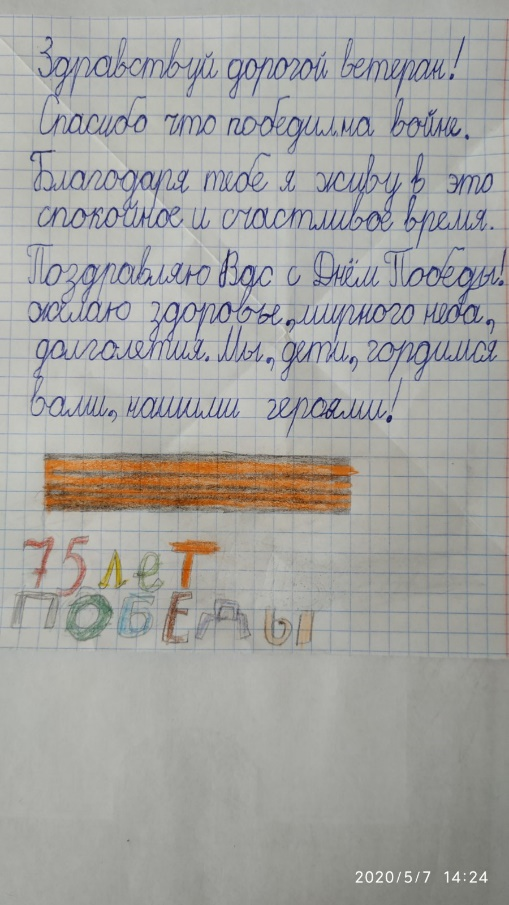 Здравствуй дорогой ветеран!
Спасибо что победил на войне.
Благодаря тебе я живу в это
спокойное и счастливое время.
Поздравляю Вас с Днём Победы!
желаю здоровье, мирного неба,
долголетия. Мы, дети, гордимся
вами, нашими героями!
75 лет
ПОБЕДЫ
2020/5/7 14:24